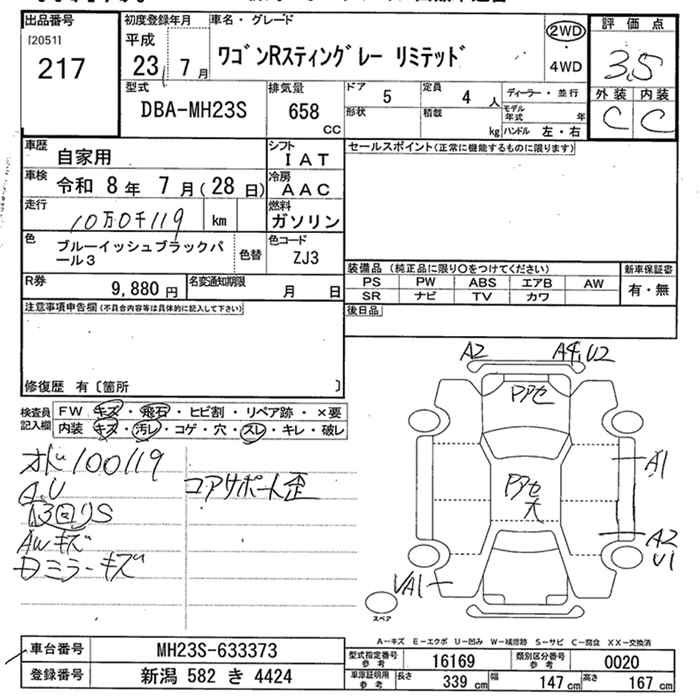 出品番号
[2051]
217
初度登録年月
平成
23 7 月
車名・グレード
ワゴンRスティングレー リミテッド
2WD
・
4WD
評価点
3.5
外装 内装
C C
型式
DBA-MH23S
排気量
658
CC
ドア
5
定員
4 人
形状
積載
kg
ディーラー・並行
モデル年式 年
ハンドル 左・右
車歴
自家用
シフト
IAT
車検
令和 8 年 7 月(28 日)
冷房
AAC
走行
10万0千119 km
燃料
ガソリン
色
ブルーイッシュブラックパール3
色替
色コード
ZJ3
セールスポイント(正常に機能するものに限ります)
R券
9,880 円
名変通知期限
月 日
装備品 (純正品に限り○をつけてください)
PS PW ABS エアB AW
SR ナビ TV カワ
新車保証書
有・無
後日品
注意事項申告欄(不具合内容等は具体的に記入して下さい)
修復歴 有〔箇所 〕
検査員記入欄
FW キズ・飛石・ヒビ割・リペア跡・×要
内装 キズ・汚レ・コゲ・穴・スレ・キレ・破レ
オド100119
A.U
コアサポート歪
AWキズ
Dミラーキズ
A2
A4,U2
PPセ
A1
PPセ
大
A2
U1
UA1
スペア
A-キズ E-エクボ U-凹み W-補修跡 S-サビ C-腐食 XX-交換済
車台番号
MH23S-633373
登録番号
新潟 582 き 4424
型式指定番号
参考
16169
類別区分番号
参考
0020
車庫証明用
参考
長さ
339 cm
幅
147 cm
高さ
167 cm